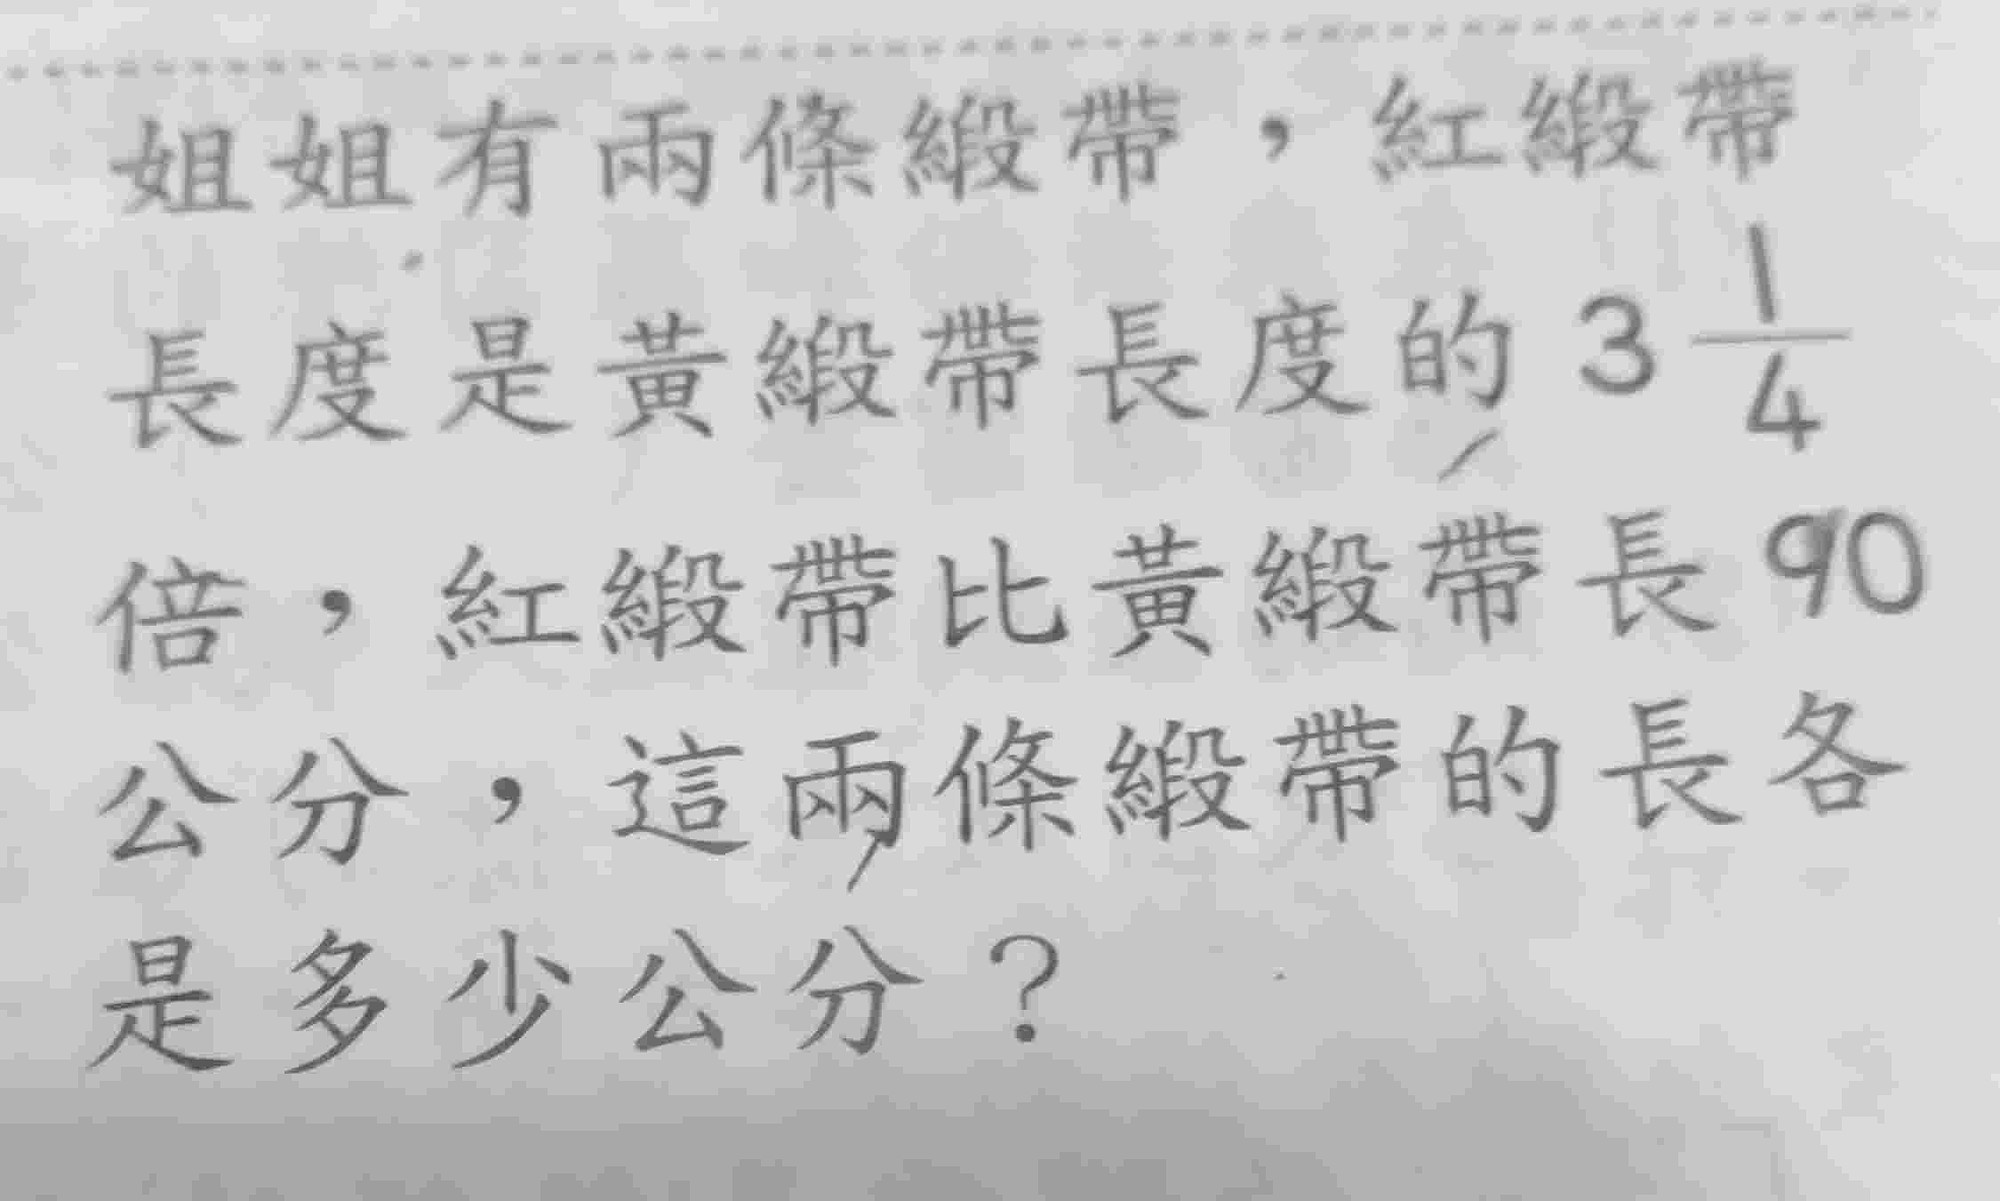 姐姐有兩條緞帶，紅緞帶
長度是黃緞帶長度的 3 1/4
倍，紅緞帶比黃緞帶長 90
公分，這兩條緞帶的長各
是多少公分？